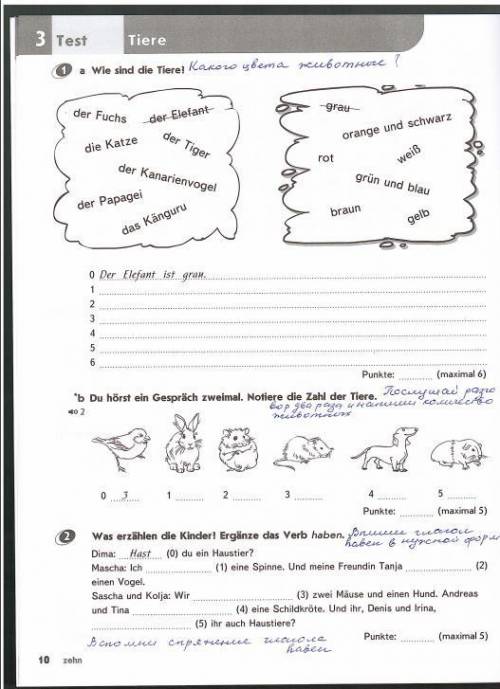 3 Test Tiere
1 a Wie sind die Tiere! Какого цвета животные?
der Fuchs der Elefant
die Katze der Tiger
der Kanarienvogel
der Papagei
das Känguru
grau
orange und schwarz
rot weiß
grün und blau
braun gelb
0 Der Elefant ist grau.
1
2
3
4
5
6
Punkte: (maximal 6)
*b Du hörst ein Gespräch zweimal. Notiere die Zahl der Tiere. Послушай разго
вор два раза и напиши количество
животных
2
0 3 1 2 3 4 5
Punkte: (maximal 5)
2 Was erzählen die Kinder! Ergänze das Verb haben. Впиши глагол
haben в нужной форм
Dima: Hast (0) du ein Haustier?
Mascha: Ich (1) eine Spinne. Und meine Freundin Tanja (2)
einen Vogel.
Sascha und Kolja: Wir (3) zwei Mäuse und einen Hund. Andreas
und Tina (4) eine Schildkröte. Und ihr, Denis und Irina,
(5) ihr auch Haustiere?
Вспомни спряжение глагола
haben
Punkte: (maximal 5)
10 zehn